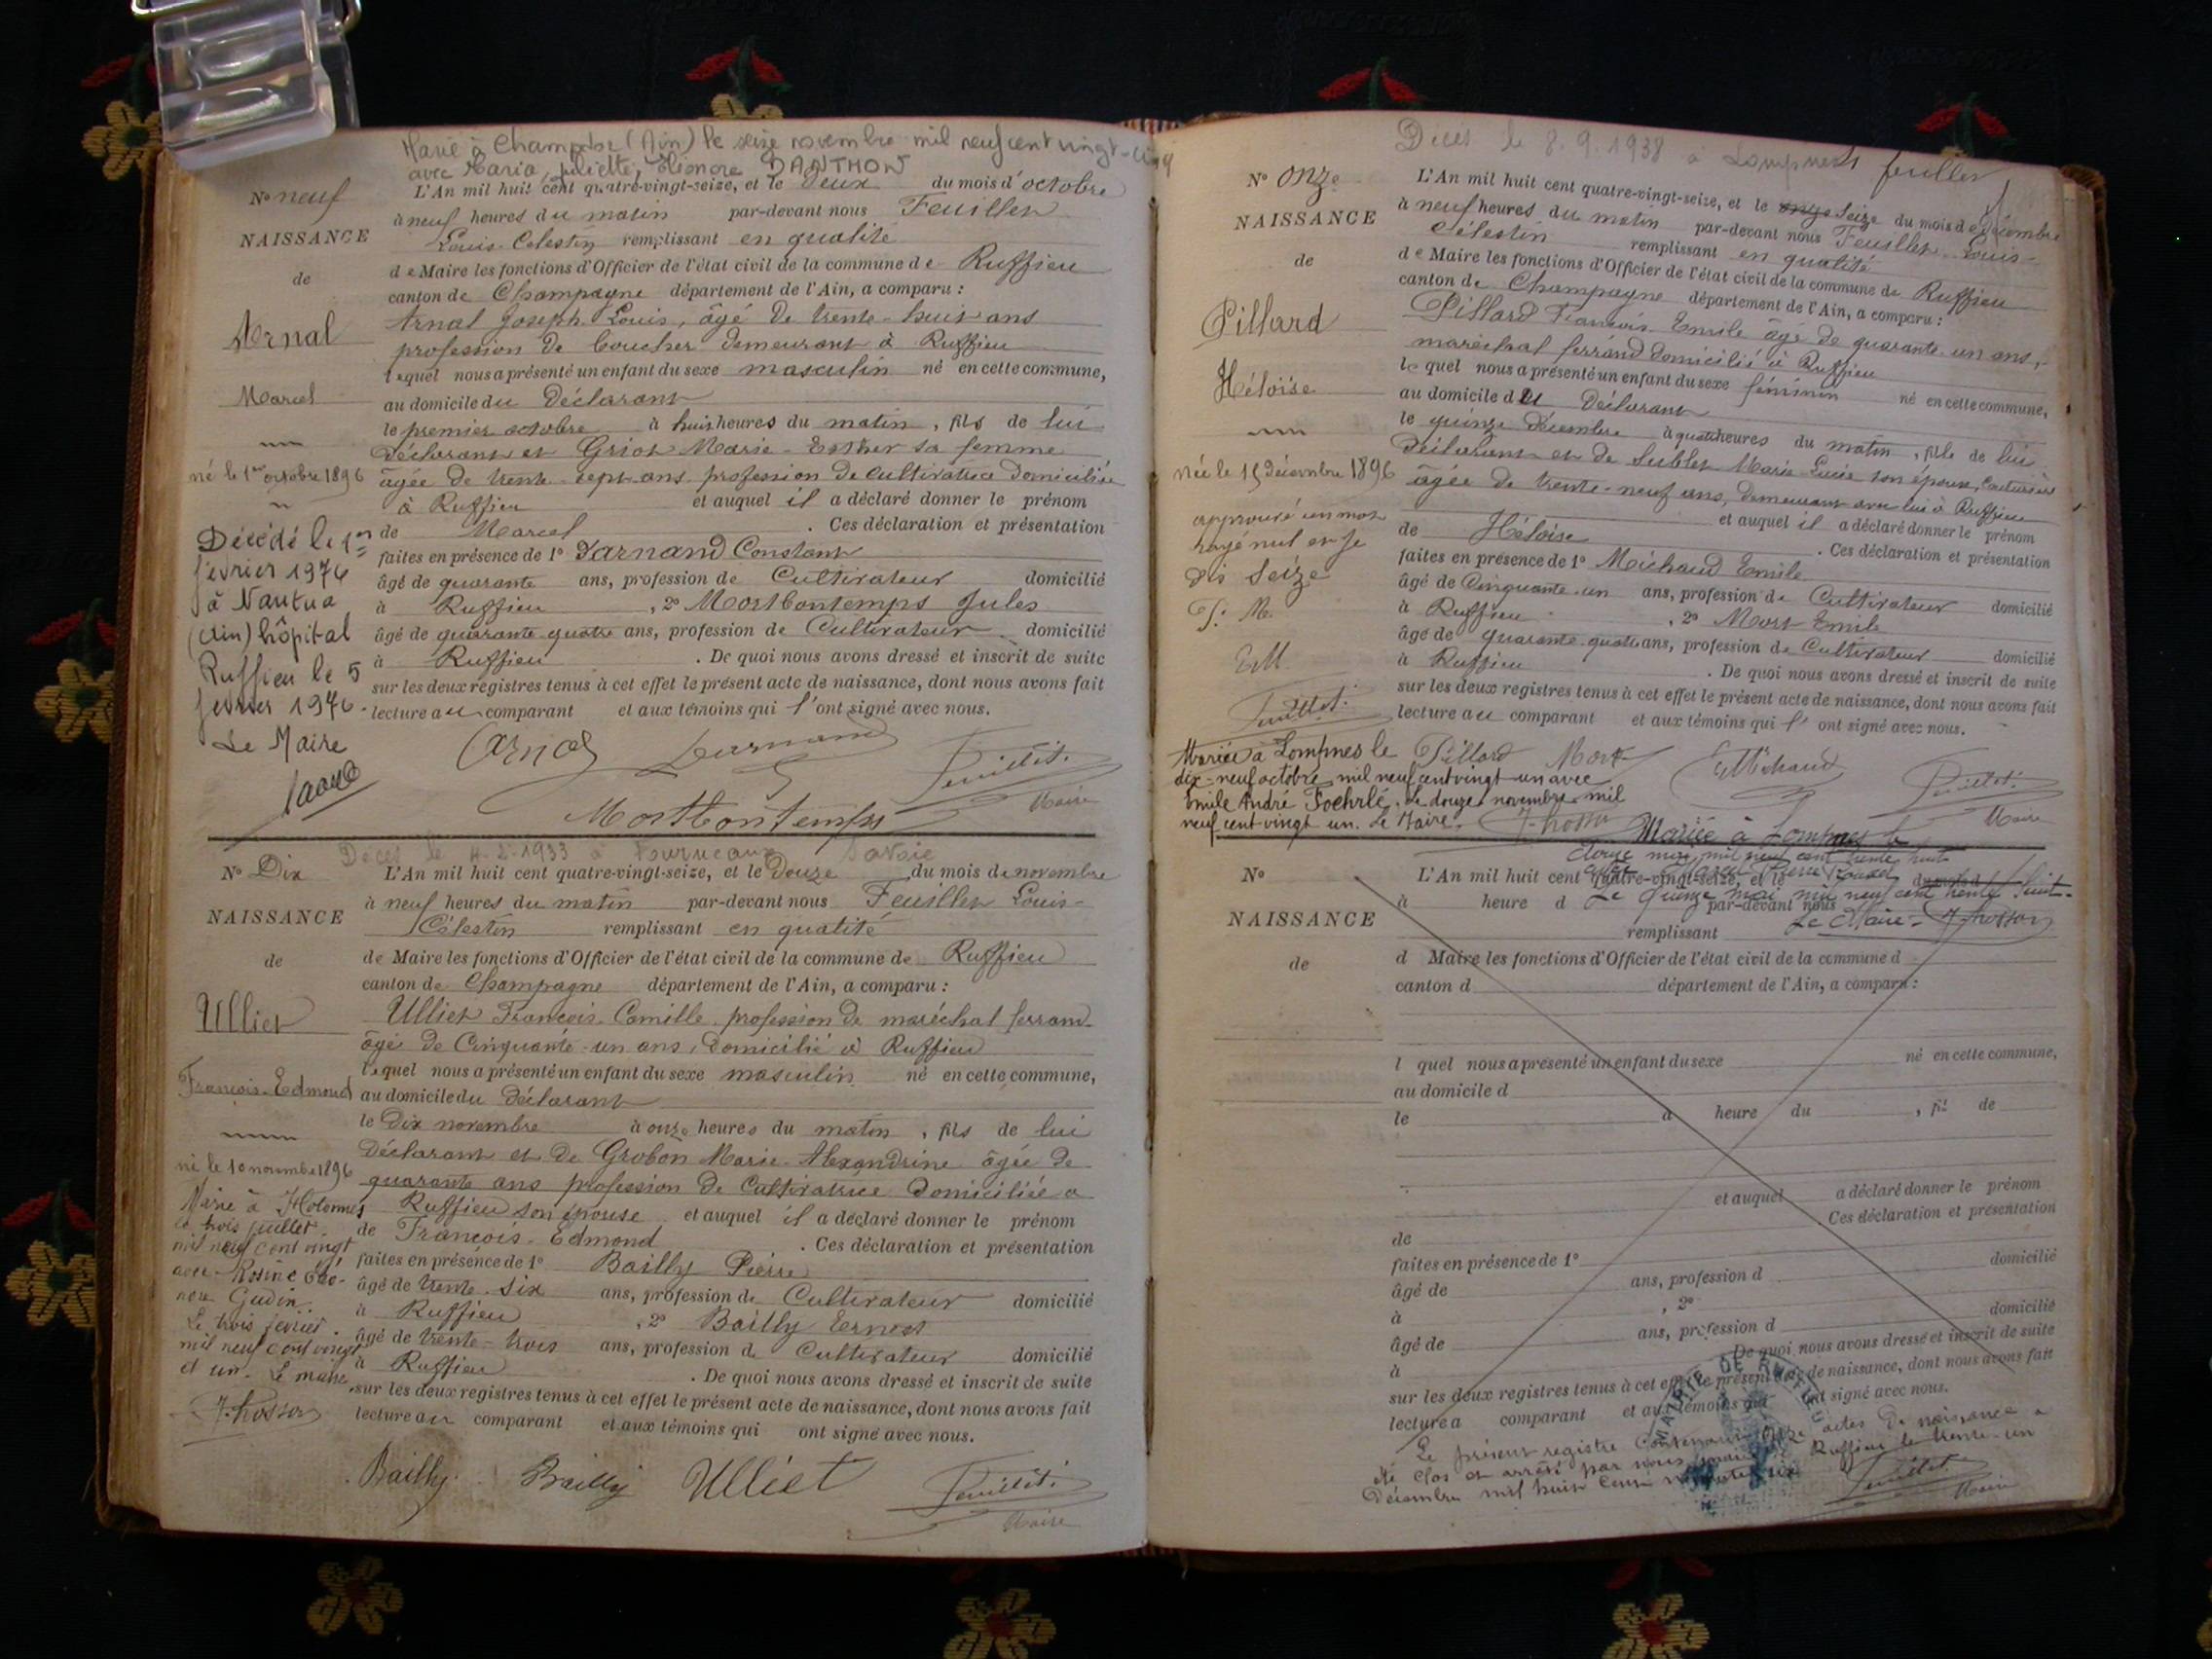 Marié à Champdor (Ain) le seize novembre mil neuf cent vingt-cinq
avec Maria, Juliette, Eléonore DANTHON
No neuf
NAISSANCE
de
Arnal
Marcel
né le 1er octobre 1896
Décédé le 1er
février 1976
à Nantua
(Ain) hôpital
Ruffieu le 5
février 1976.
Le Maire
L'An mil huit cent quatre-vingt-seize, et le deux du mois d'octobre
à neuf heures du matin par-devant nous Feuillet
Louis-Célestin remplissant en qualité
de Maire les fonctions d'Officier de l'état civil de la commune de Ruffieu
canton de Champagne département de l'Ain, a comparu :
Arnal Joseph Louis, âgé de trente-huit ans
profession de boucher demeurant à Ruffieu
lequel nous a présenté un enfant du sexe masculin né en cette commune,
au domicile du déclarant
le premier octobre à huit heures du matin, fils de lui
déclarant et Griot Marie-Esther sa femme
âgée de trente-sept ans profession de cultivatrice domiciliée
à Ruffieu et auquel il a déclaré donner le prénom
de Marcel. Ces déclaration et présentation
faites en présence de 1° Darnand Constant
âgé de quarante ans, profession de Cultivateur domicilié
à Ruffieu, 2° Mortbontemps Jules
âgé de quarante-quatre ans, profession de Cultivateur domicilié
à Ruffieu. De quoi nous avons dressé et inscrit de suite
sur les deux registres tenus à cet effet le présent acte de naissance, dont nous avons fait
lecture au comparant et aux témoins qui l'ont signé avec nous.
Arnal Darnand Feuillet.
Mortbontemps Maire
Décès le 4-2-1933 à Fourneaux Savoie
No Dix
NAISSANCE
de
Ulliet
François-Edmond
né le 10 novembre 1896
Marié à Hotonnes
le trois juillet
mil neuf cent vingt
avec Rosine
Gudin.
Le trois février
mil neuf cent vingt
et un. Le maire
L'An mil huit cent quatre-vingt-seize, et le Douze du mois de novembre
à neuf heures du matin par-devant nous Feuillet Louis-
Célestin remplissant en qualité
de Maire les fonctions d'Officier de l'état civil de la commune de Ruffieu
canton de Champagne département de l'Ain, a comparu :
Ulliet François-Camille profession de maréchal ferrand
âgé de Cinquante-un ans, domicilié à Ruffieu
lequel nous a présenté un enfant du sexe masculin né en cette commune,
au domicile du déclarant
le Dix novembre à onze heures du matin, fils de lui
Déclarant et de Grobon Marie-Alexandrine âgée de
quarante ans profession de Cultivatrice domiciliée à
Ruffieu son épouse et auquel il a déclaré donner le prénom
de François-Edmond. Ces déclaration et présentation
faites en présence de 1° Bailly Pierre
âgé de trente-six ans, profession de Cultivateur domicilié
à Ruffieu, 2° Bailly Ernest
âgé de trente-trois ans, profession de Cultivateur domicilié
à Ruffieu. De quoi nous avons dressé et inscrit de suite
sur les deux registres tenus à cet effet le présent acte de naissance, dont nous avons fait
lecture au comparant et aux témoins qui ont signé avec nous.
Bailly Bailly Ulliet Feuillet.
Maire
Décès le 8.9.1938 à Lompnes
feuillet
No onze
NAISSANCE
de
Pillard
Héloïse
née le 15 décembre 1896
approuvé un mot
rayé nul et je
dis seize
P. M.
E.M.
Feuillet.
L'An mil huit cent quatre-vingt-seize, et le onze seize du mois de décembre
à neuf heures du matin par-devant nous Feuillet Louis-
Célestin remplissant en qualité
de Maire les fonctions d'Officier de l'état civil de la commune de Ruffieu
canton de Champagne département de l'Ain, a comparu :
Pillard François-Emile âgé de quarante-un ans,
maréchal ferrand domicilié à Ruffieu
lequel nous a présenté un enfant du sexe féminin né en cette commune,
au domicile du Déclarant
le quinze décembre à quatre heures du matin, fille de lui
Déclarant et de Sublet Marie-Luise son épouse, couturière
âgée de trente-neuf ans, demeurant avec lui à Ruffieu
et auquel il a déclaré donner le prénom
de Héloïse. Ces déclaration et présentation
faites en présence de 1° Michaud Emile
âgé de Cinquante-un ans, profession de Cultivateur domicilié
à Ruffieu, 2° Mort Emile
âgé de quarante-quatre ans, profession de Cultivateur domicilié
à Ruffieu. De quoi nous avons dressé et inscrit de suite
sur les deux registres tenus à cet effet le présent acte de naissance, dont nous avons fait
lecture au comparant et aux témoins qui l'ont signé avec nous.
Pillard Mort E Michaud Feuillet.
Maire
Mariée à Lompnes le
dix-neuf octobre mil neuf cent vingt un avec
Emile André Foehrlé. Le douze novembre mil
neuf cent vingt un. Le Maire.
Mariée à Lompnes le
douze mai mil neuf cent trente huit
avec Marcel Pierre
Le quinze mai mil neuf cent trente huit.
Le Maire
No
NAISSANCE
de
L'An mil huit cent quatre-vingt-seize, et le du mois d
à heure d par-devant nous
remplissant
d Maire les fonctions d'Officier de l'état civil de la commune d
canton d département de l'Ain, a comparu :
l quel nous a présenté un enfant du sexe né en cette commune,
au domicile d
le à heure du , fil de
et auquel a déclaré donner le prénom
de . Ces déclaration et présentation
faites en présence de 1°
âgé de ans, profession d domicilié
à , 2°
âgé de ans, profession d domicilié
à . De quoi nous avons dressé et inscrit de suite
sur les deux registres tenus à cet effet le présent acte de naissance, dont nous avons fait
lecture a comparant et aux témoins qui ont signé avec nous.
MAIRIE DE
Le présent registre contenant onze actes de naissance a
été clos et arrêté par nous maire Ruffieu le trente-un
Décembre mil huit cent
Feuillet
Maire